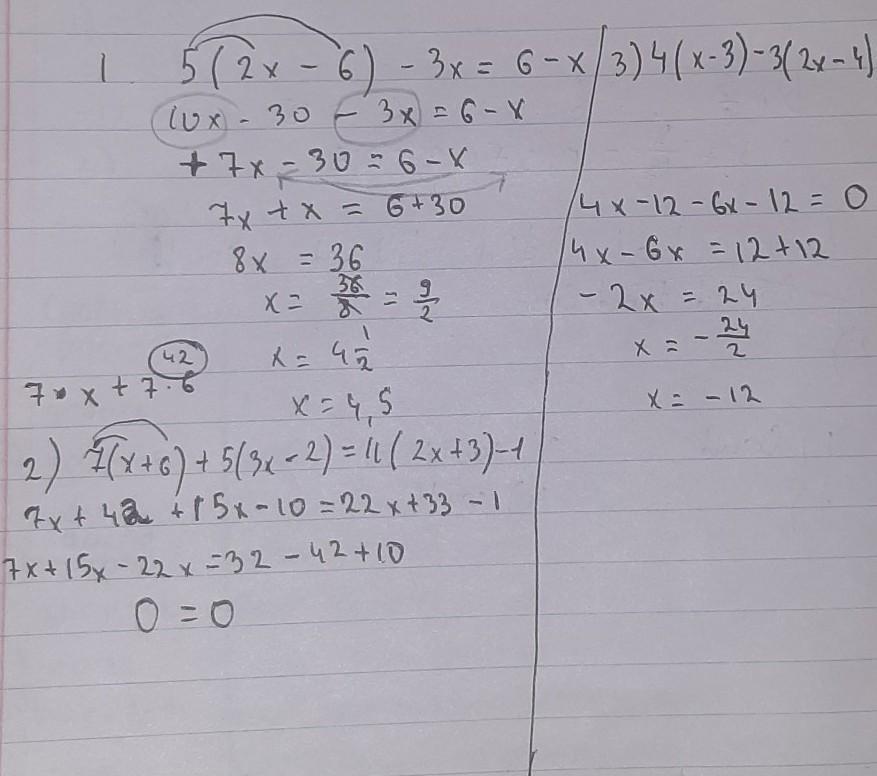 1. 5(2x - 6) - 3x = 6 - x
10x - 30 - 3x = 6 - x
+ 7x - 30 = 6 - x
7x + x = 6 + 30
8x = 36
x = 36/8 = 9/2
x = 4 1/2
x = 4,5
42
7 • x + 7 · 6
2) 7(x+6) + 5(3x - 2) = 11(2x+3) - 1
7x + 42 + 15x - 10 = 22x + 33 - 1
7x + 15x - 22x = 32 - 42 + 10
0 = 0
3) 4(x-3) - 3(2x-4)
4x - 12 - 6x - 12 = 0
4x - 6x = 12 + 12
- 2x = 24
x = - 24/2
x = - 12